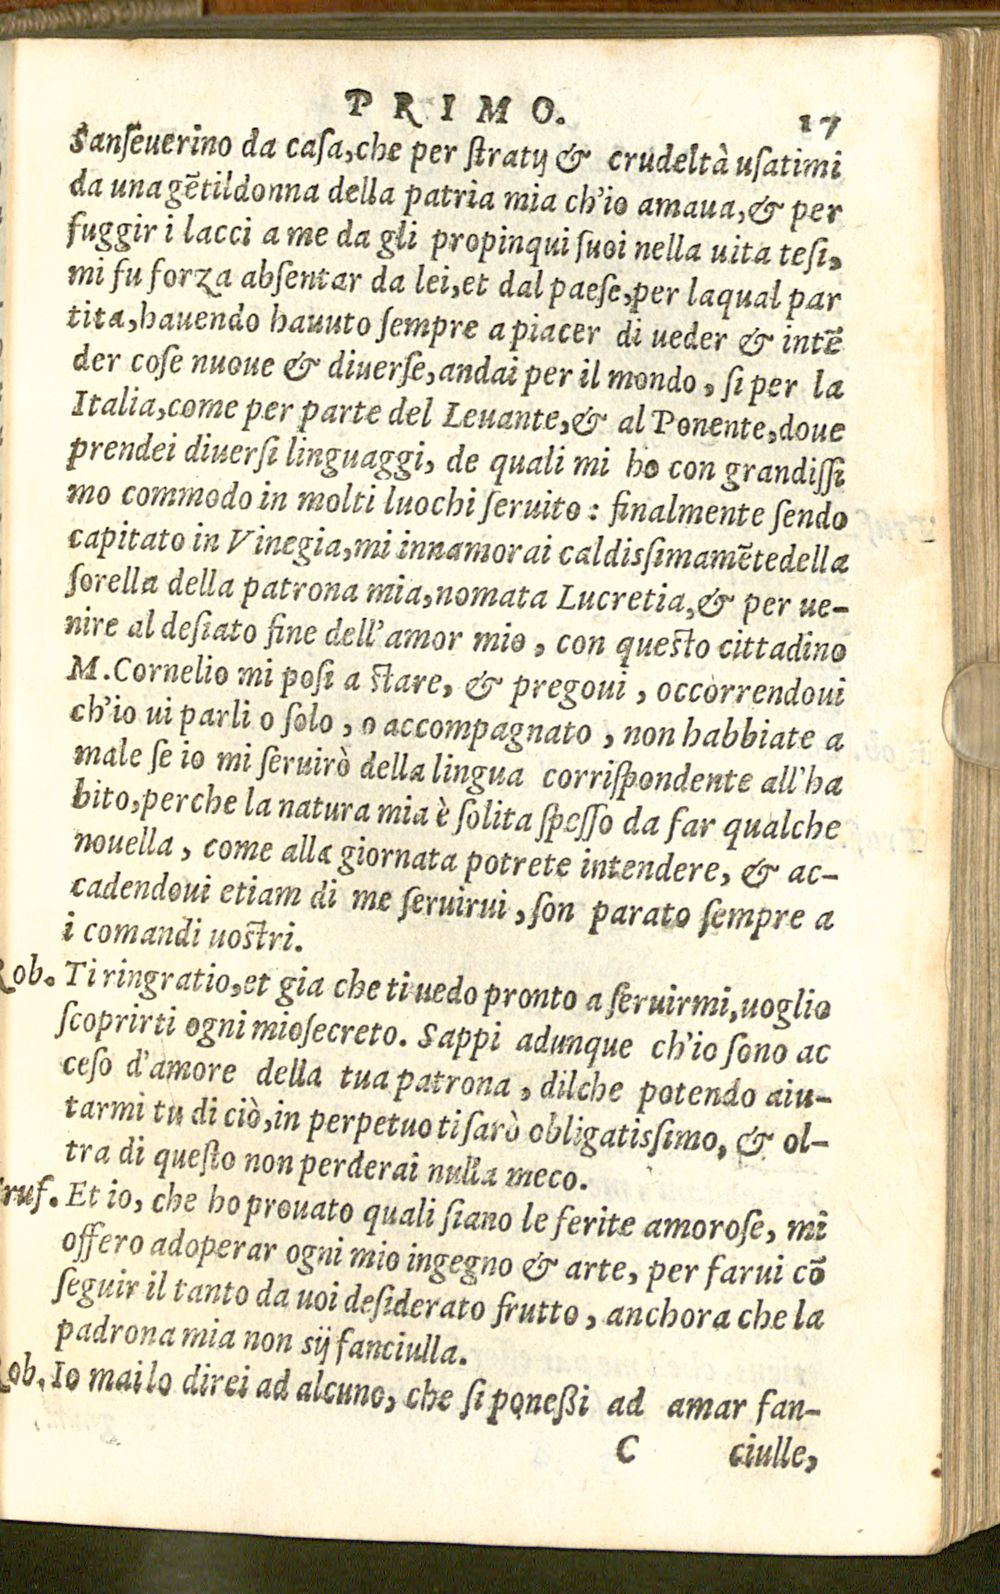 PRIMO.
17
Sanſeuerino da caſa,che per ſtratij & crudeltà uſatimi
da una gẽtildonna della patria mia ch'io amaua,& per
fuggir i lacci a me da gli propinqui ſuoi nella uita teſi,
mi fu forza abſentar da lei,et dal paeſe,per laqual par
tita,hauendo hauuto ſempre a piacer di ueder & intẽ
der coſe nuoue & diuerſe,andai per il mondo, ſi per la
Italia,come per parte del Leuante,& al Ponente,doue
prendei diuerſi linguaggi, de quali mi ho con grandiſſi
mo commodo in molti luochi ſeruito: finalmente ſendo
capitato in Vinegia,mi innamorai caldisſimamẽtedella
ſorella della patrona mia,nomata Lucretia,& per ue-
nire al deſiato fine dell'amor mio, con queſto cittadino
M.Cornelio mi poſi a ſtare, & pregoui, occorrendoui
ch'io ui parli o ſolo, o accompagnato, non habbiate a
male ſe io mi ſeruirò della lingua corriſpondente all'ha
bito,perche la natura mia è ſolita ſpeſſo da far qualche
nouella, come alla giornata potrete intendere, & ac-
cadendoui etiam di me ſeruirui, ſon parato ſempre a
i comandi uoſtri.
Rob. Ti ringratio,et gia che ti uedo pronto a ſeruirmi,uoglio
ſcoprirti ogni mioſecreto. Sappi adunque ch'io ſono ac
ceſo d'amore della tua patrona, dilche potendo aiu-
tarmi tu di ciò,in perpetuo ti ſarò obligatisſimo, & ol-
tra di queſto non perderai nulla meco.
Truf. Et io, che ho prouato quali ſiano le ferite amoroſe, mi
offero adoperar ogni mio ingegno & arte, per farui cõ
ſeguir il tanto da uoi deſiderato frutto, anchora che la
padrona mia non sij fanciulla.
Rob. Io mai lo direi ad alcuno, che ſi poneßi ad amar fan-
C ciulle,